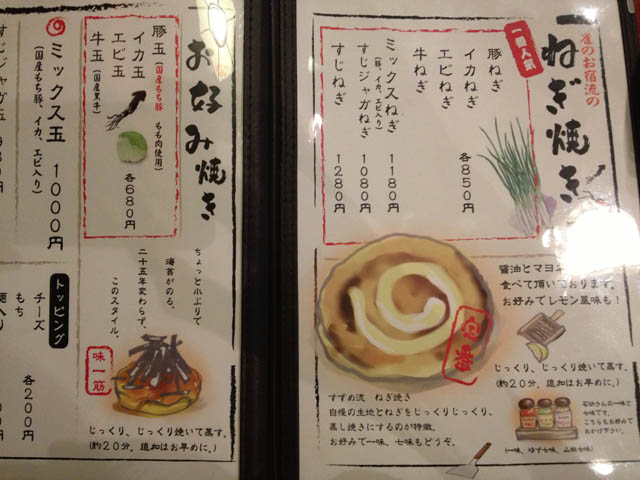 雀のお宿流の
ねぎ焼き
一番人気
豚ねぎ
イカねぎ
エビねぎ
牛ねぎ
各850円
ミックスねぎ 1180円
(豚、イカ、エビ入り)
すじジャガねぎ 1080円
すじねぎ 1280円
醤油とマヨネ
食べて頂いております。
お好みでレモン風味も!
じっくり、じっくり焼いて蒸す。
(約20分、追加はお早めに。)
すずめ流 ねぎ焼き
自慢の生地とねぎをじっくりじっくり、
蒸し焼きにするのが特徴。
お好みで一味、七味もどうぞ。
七味です。
こちらもお好みで
おかけ下さい。
(一味、ゆず七味、山椒七味)
お好み焼き
豚玉(国産もち豚 もも肉使用)
イカ玉
エビ玉
牛玉(国産黒牛)
各680円
ミックス玉 1000円
(国産もち豚、イカ、エビ入り)
すじジャガ玉
ちょっと小ぶりで
海苔がのる。
二十五年変わらず、
このスタイル。
味一筋
じっくり、じっくり焼いて蒸す。
(約20分、追加はお早めに。)
トッピング
チーズ
もち
各200円